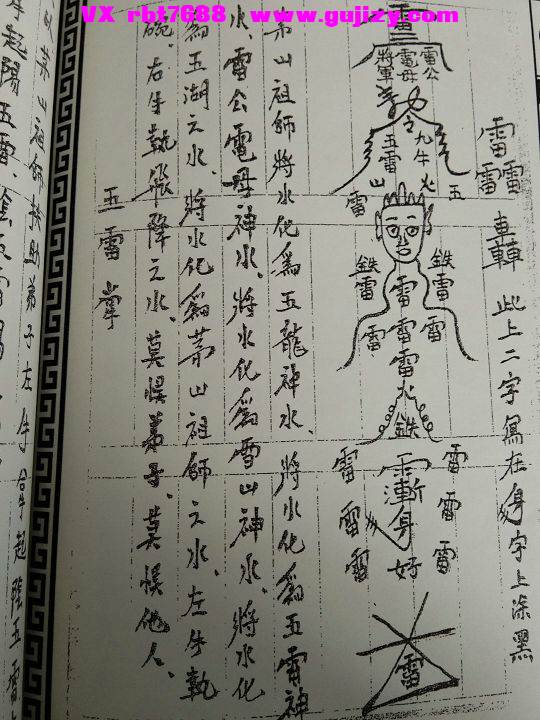 VX rbt7688 www.gujizy.com
雷雷雷
此上二字寫在身字上涂黑
雷
雷公
電母
將軍
九牛
五雷
山
火
五
雷
鉄雷
雷
鉄雷
雷
雷
雷
雷
雷
火
鉄
雷
雷
雷
雷
雷
雷
身
好
雷
茅山祖師將水化爲五龍神水、將水化爲五雷神
水、雷公電母神水、將水化爲雪山神水、將水化
爲五湖之水、將水化爲茅山祖師之水、左手執
碗、右手執 降之水、莫悮弟子、莫悮他人、
五雷掌
茅山祖師扶助弟子左手 起陰五雷
手起陽五雷、